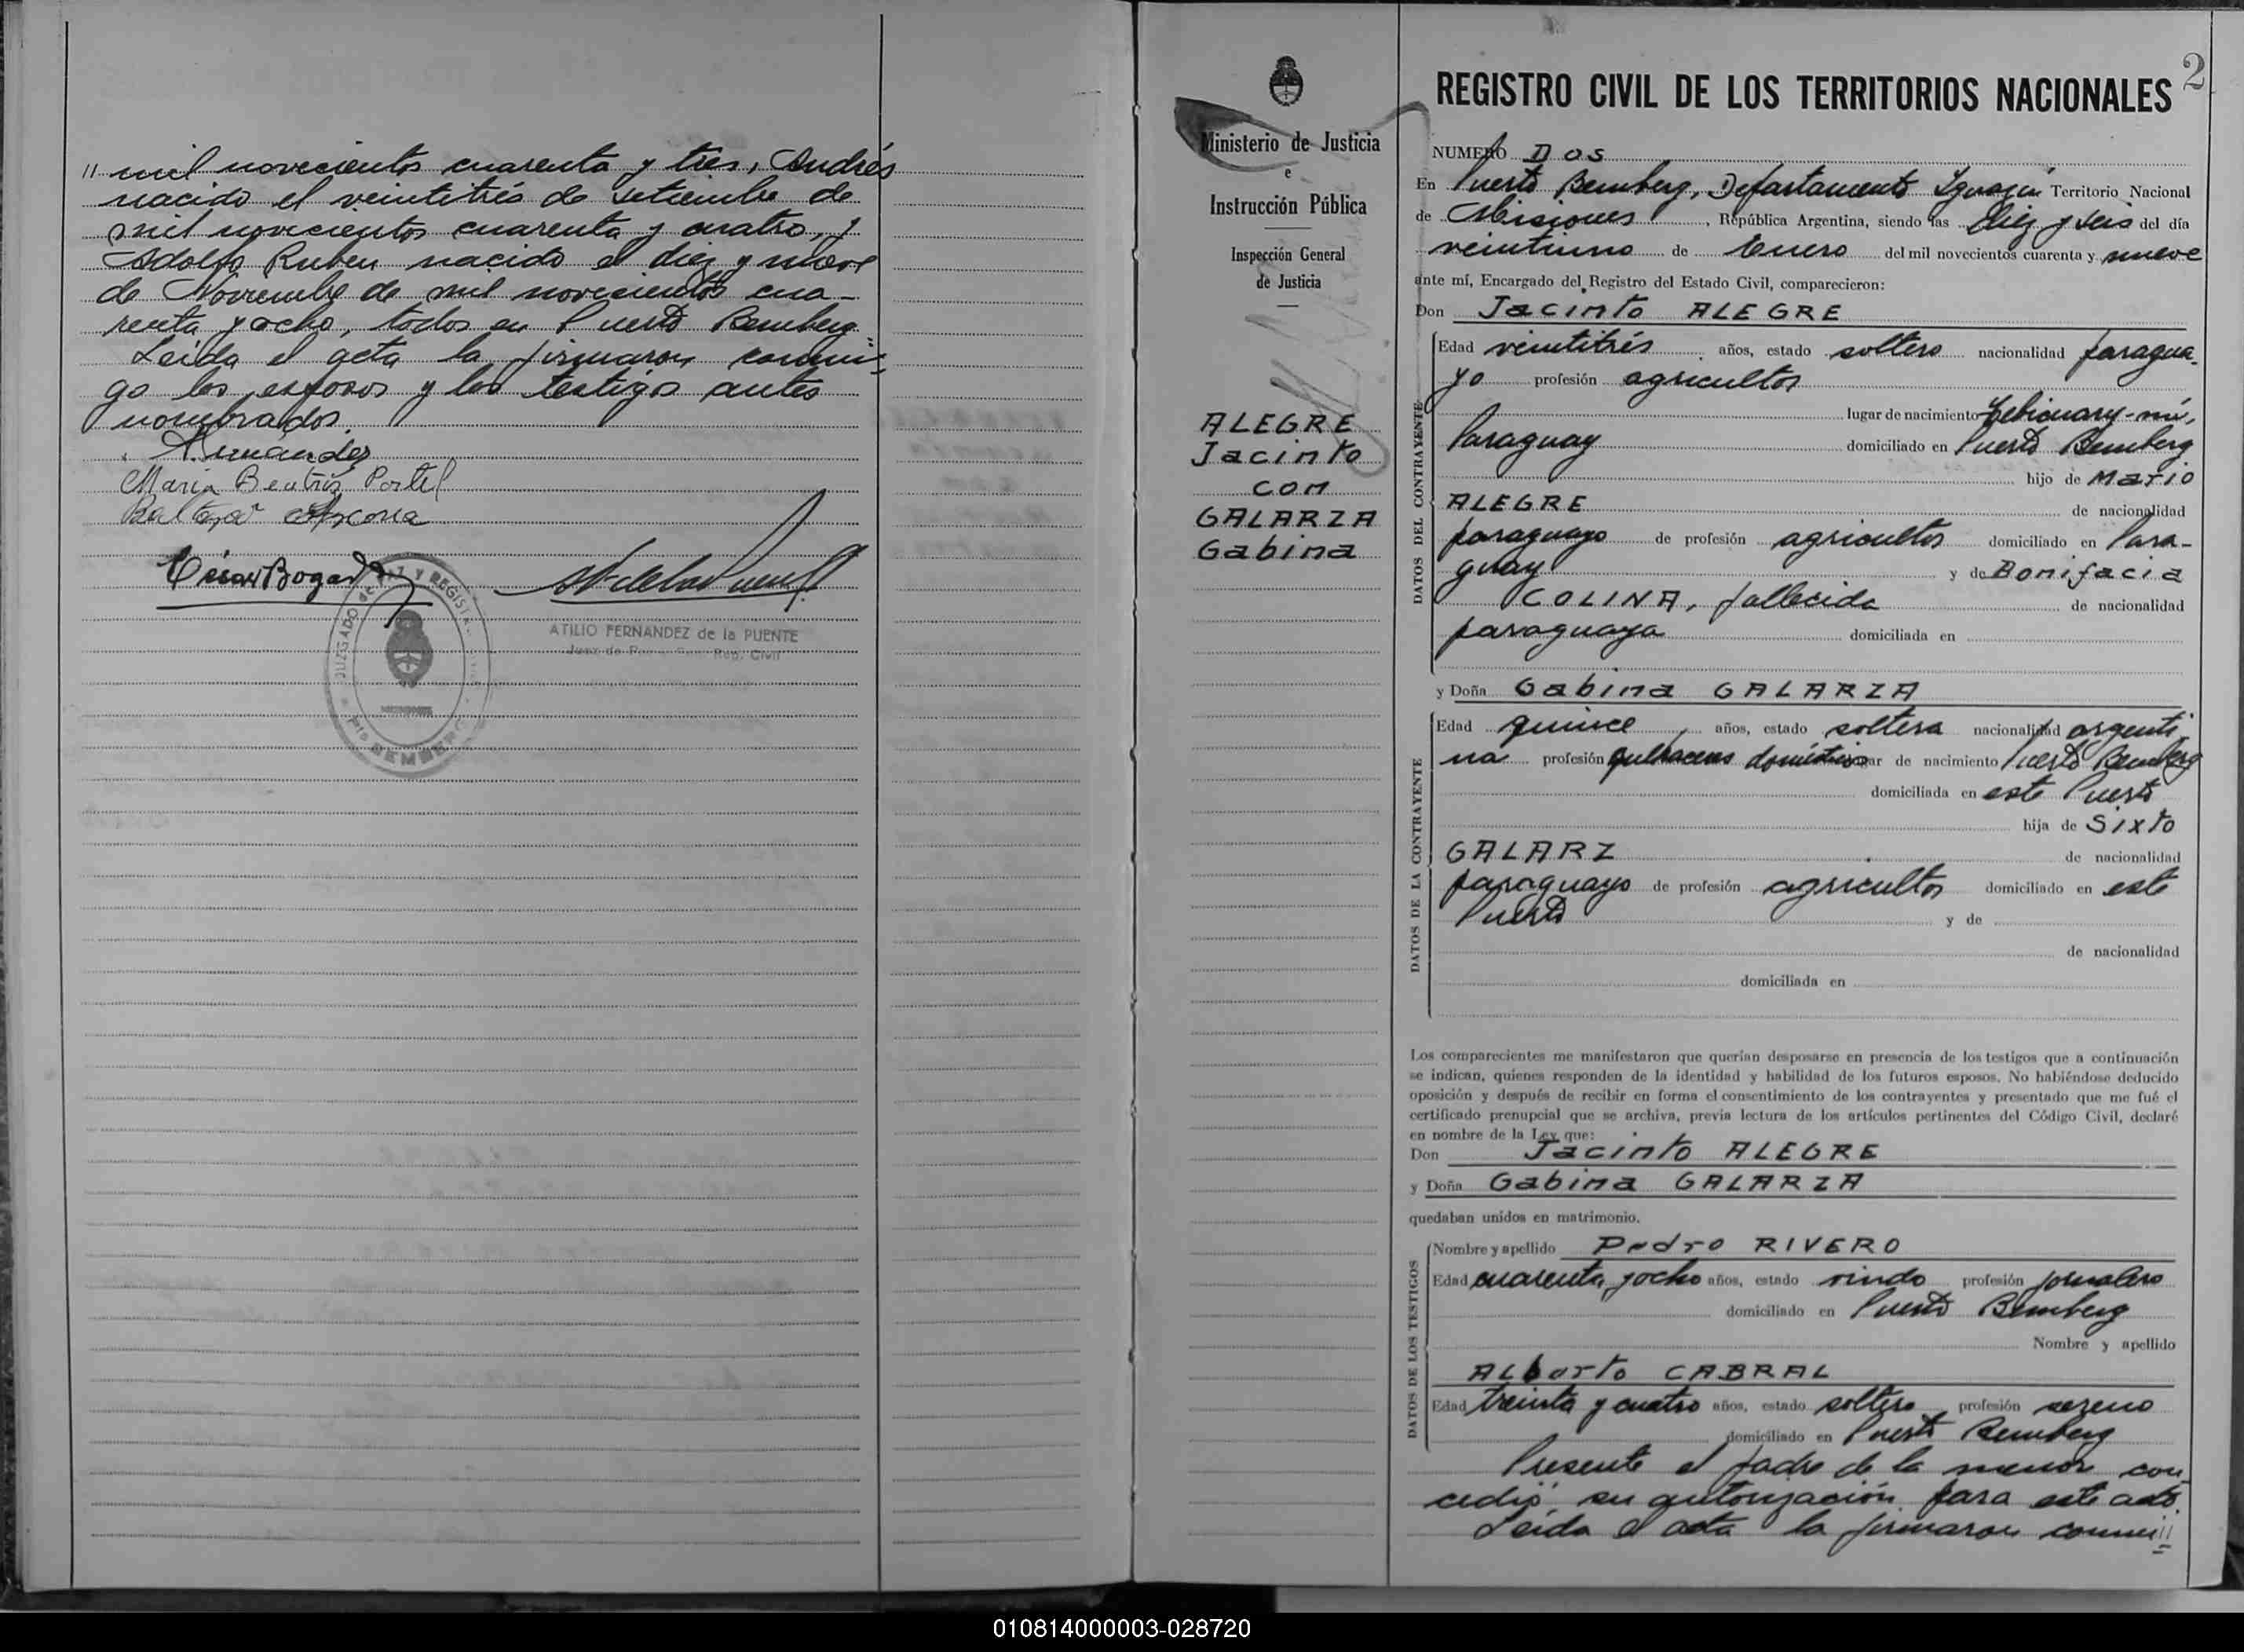 " mil novecientos cuarenta y tres, Andrés
nacido el veintitrés de setiembre de
mil novecientos cuarenta y cuatro, y
Adolfo Ruben nacido el diez y nueve
de Noviembre de mil novecientos cua-
renta y ocho, todos en Puerto Bemberg.
Leída el acta la firmaron conmi-
go los esposos y los testigos antes
nombrados.
A. Fernández
Maria Beatriz Portel
Baltazar Ascona
César Bogado
JUZGADO de PAZ Y REGISTRO CIVIL
Pto BEMBERG
ATILIO FERNANDEZ de la PUENTE
Juez de Paz Reg. Civil
Ministerio de Justicia
e
Instrucción Pública
Inspección General
de Justicia
ALEGRE
Jacinto
con
GALARZA
Gabina
2
REGISTRO CIVIL DE LOS TERRITORIOS NACIONALES
NUMERO Dos
En Puerto Bemberg, Departamento Iguazú Territorio Nacional
de Misiones, República Argentina, siendo las diez y seis del día
veintiuno de Enero del mil novecientos cuarenta y nueve
ante mí, Encargado del Registro del Estado Civil, comparecieron:
Don Jacinto ALEGRE
DATOS DEL CONTRAYENTE
Edad veintitrés años, estado soltero nacionalidad paragua-
yo profesión agricultor
lugar de nacimiento Tebicuary-mí,
Paraguay domiciliado en Puerto Bemberg
hijo de Mario
ALEGRE de nacionalidad
paraguayo de profesión agricultor domiciliado en Para-
guay y de Bonifacia
COLINA, fallecida de nacionalidad
paraguaya domiciliada en
y Doña Gabina GALARZA
DATOS DE LA CONTRAYENTE
Edad quince años, estado soltera nacionalidad argenti
na profesión quehaceres domésticos lugar de nacimiento Puerto Bemberg
domiciliada en este Puerto
hija de Sixto
GALARZ de nacionalidad
paraguayo de profesión agricultor domiciliado en este
Puerto y de
de nacionalidad
domiciliada en
Los comparecientes me manifestaron que querían desposarse en presencia de los testigos que a continuación
se indican, quienes responden de la identidad y habilidad de los futuros esposos. No habiéndose deducido
oposición y después de recibir en forma el consentimiento de los contrayentes y presentado que me fué el
certificado prenupcial que se archiva, previa lectura de los artículos pertinentes del Código Civil, declaré
en nombre de la Ley que:
Don Jacinto ALEGRE
y Doña Gabina GALARZA
quedaban unidos en matrimonio.
DATOS DE LOS TESTIGOS
Nombre y apellido Pedro RIVERO
Edad cuarenta y ocho años, estado viudo profesión jornalero
domiciliado en Puerto Bemberg
Nombre y apellido
Alberto CABRAL
Edad treinta y cuatro años, estado soltero profesión sereno
domiciliado en Puerto Bemberg
Presente el padre de la menor con-
cedió su autorización para este acto.
Leída el acta la firmaron conmi"
010814000003-028720